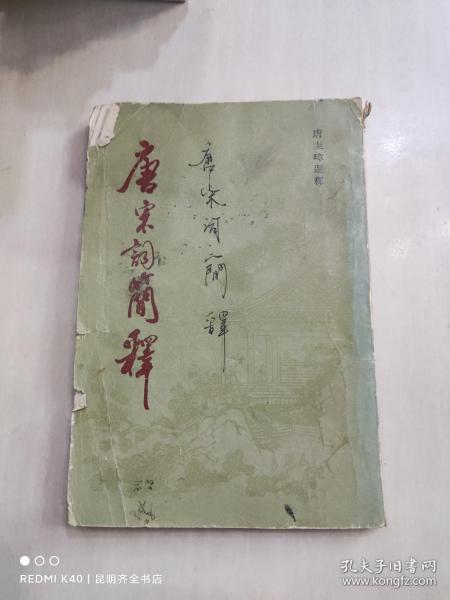 唐圭璋選釋
唐宋词简释
唐宋詞簡釋
REDMI K40 | 昆明齐全书店
孔夫子旧书网
www.kongfz.com